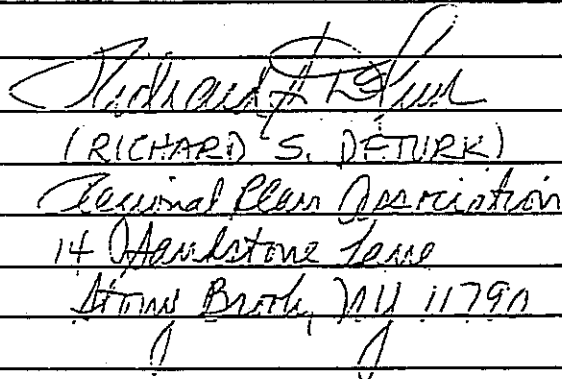 Richard S. DeTurk
(RICHARD S. DETURK)
Regional Plan Association
14 Sandstone Lane
Stony Brook, NY 11790